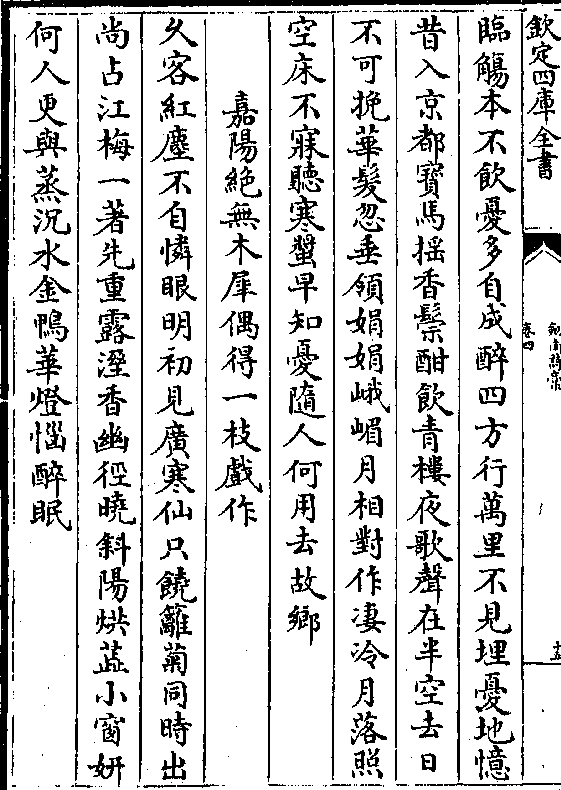 欽定四庫全書
卷四
臨觴本不飲憂多自成醉四方行萬里不見埋憂地憶
昔入京都寶馬揺香鬃酣飲青樓夜歌聲在半空去日
不可挽華髮忽垂領娟娟峨嵋月相對作凄冷月落照
空床不寐聽寒螿早知憂隨人何用去故鄉
嘉陽絶無木犀偶得一枝戲作
久客紅塵不自憐眼明初見廣寒仙只饒籬菊同時出
尚占江梅一著先重露溼香幽徑曉斜陽烘蕋小窗妍
何人更與蒸沉水金鴨華燈惱醉眠